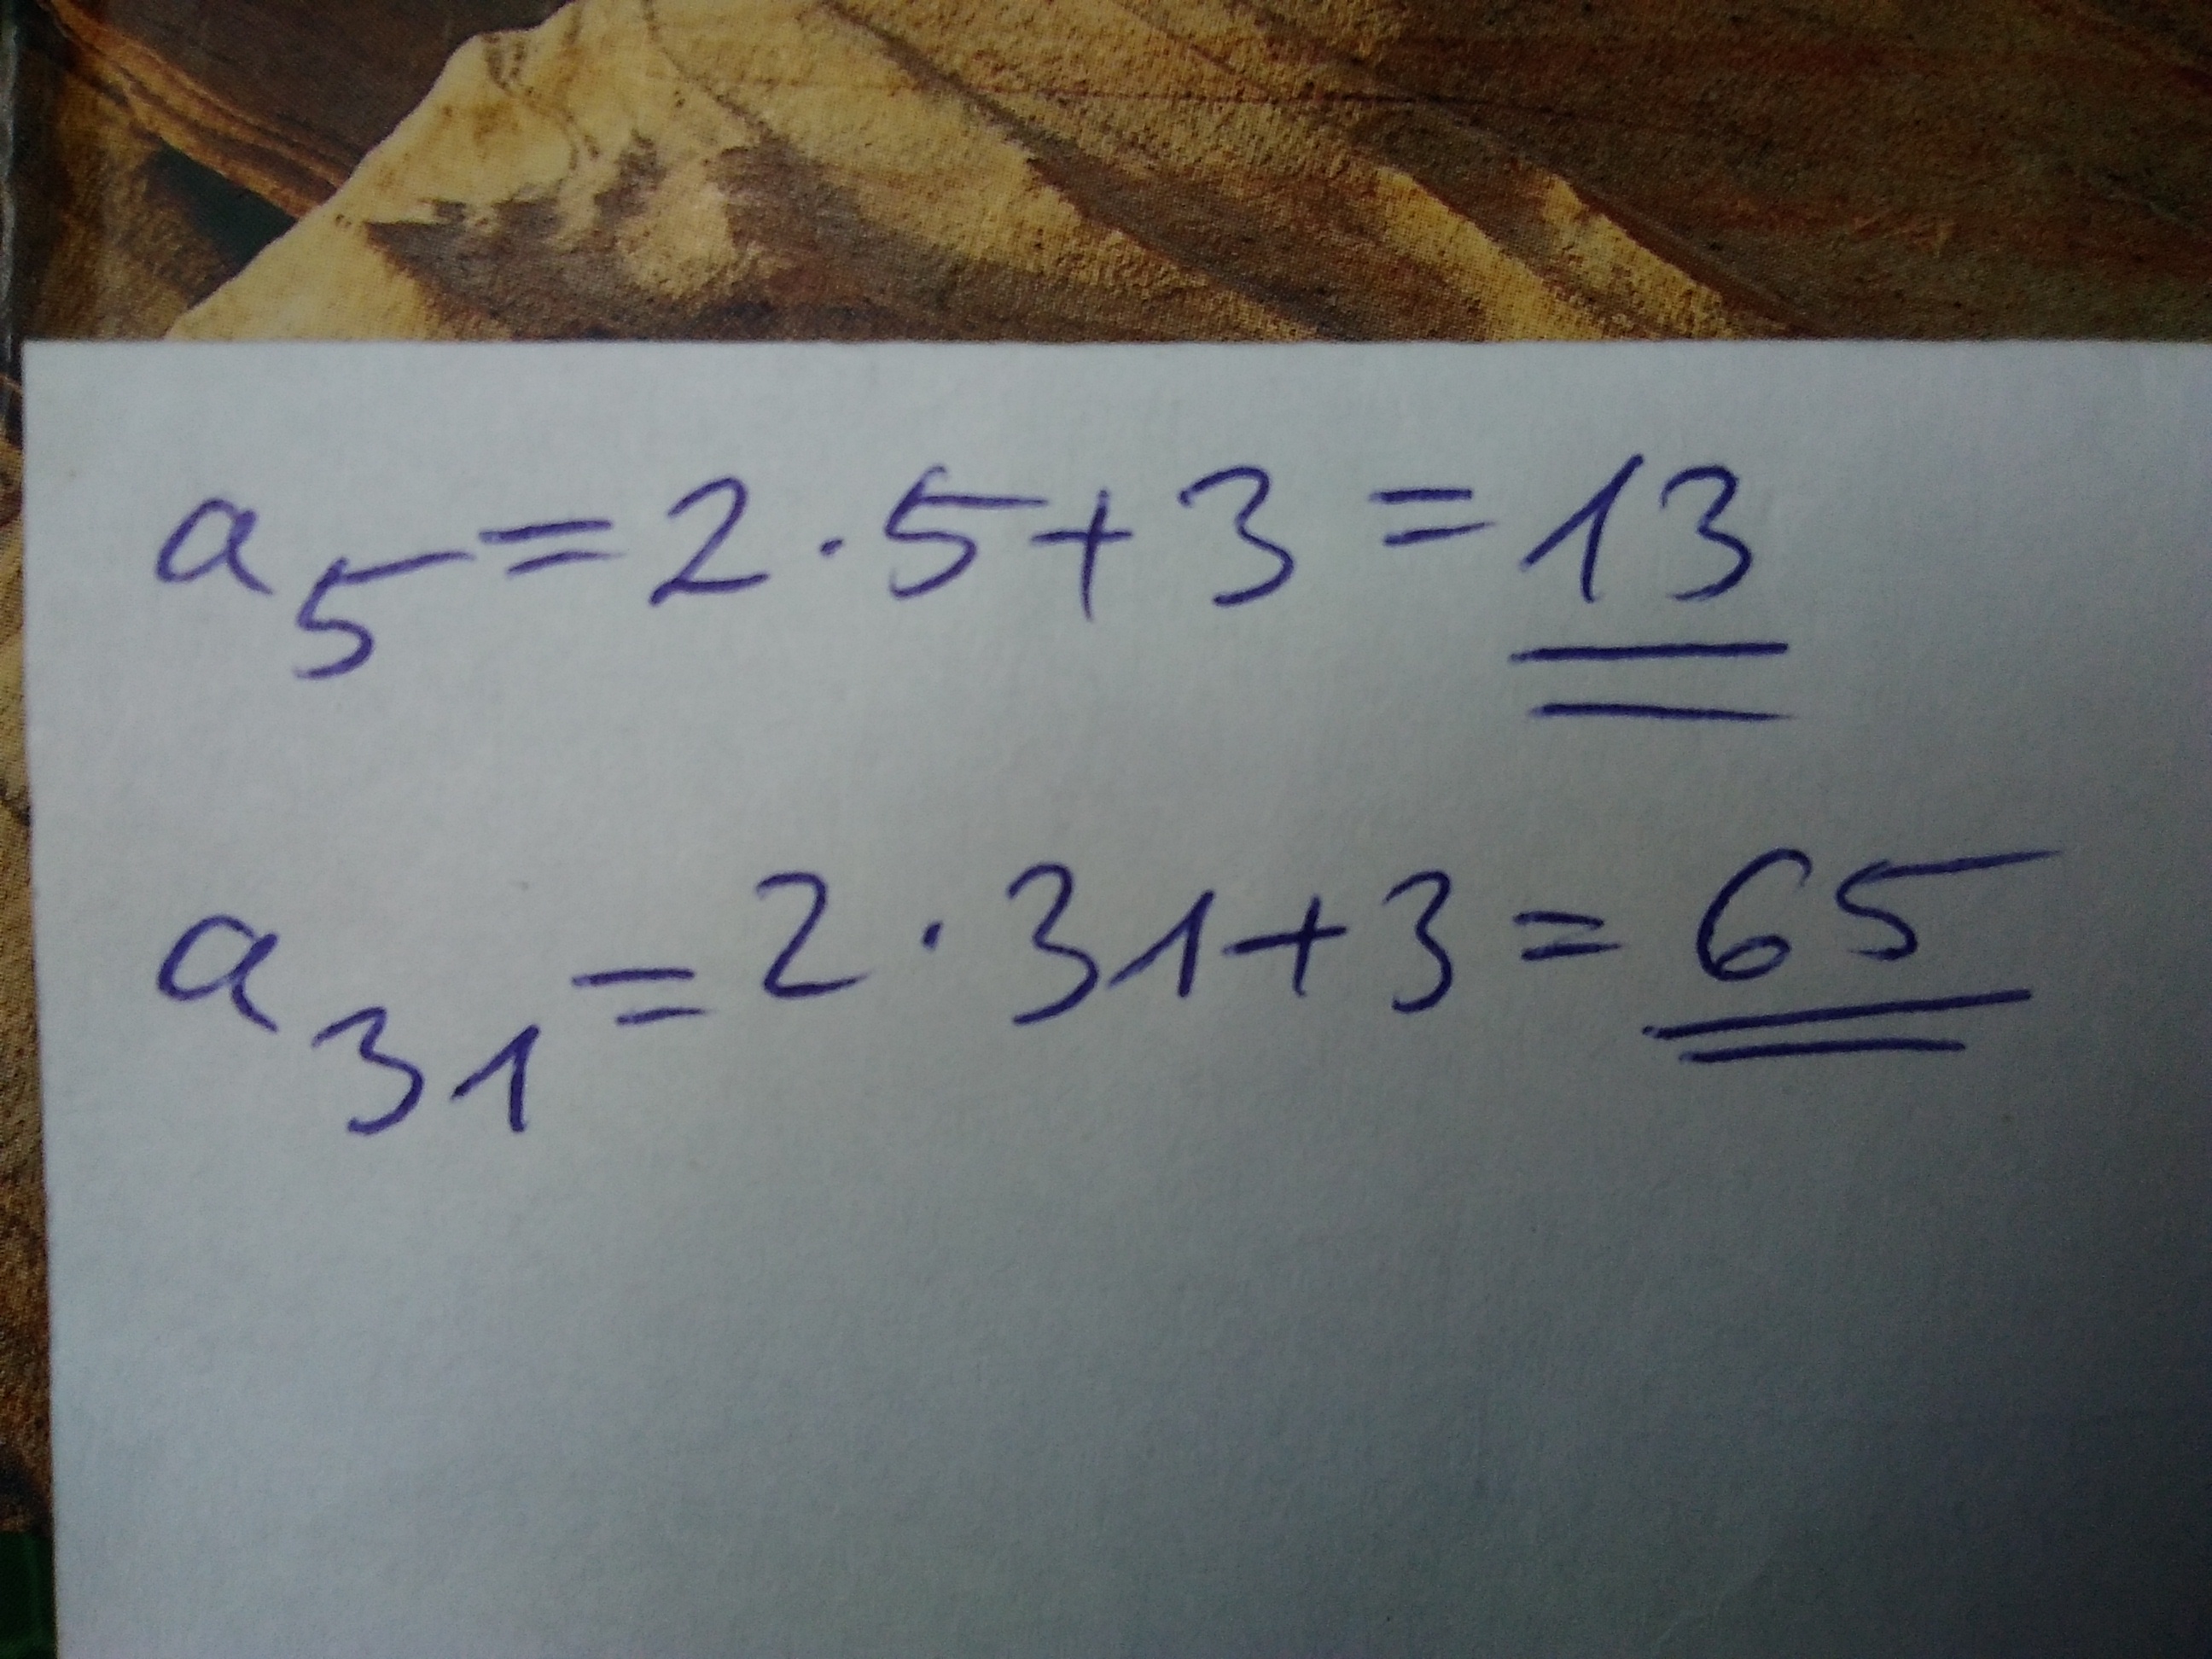 a₅ = 2 · 5 + 3 = 13
a₃₁ = 2 · 31 + 3 = 65